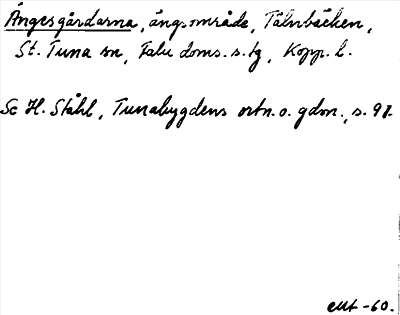 Ängesgårdarna, ängsområde, Tälnbäcken,
St. Tuna sn, Falu doms. s. tg, Kopp. l.
Se H. Ståhl, Tunabygdens ortn. o. gdn., s. 97.
EUt -60.